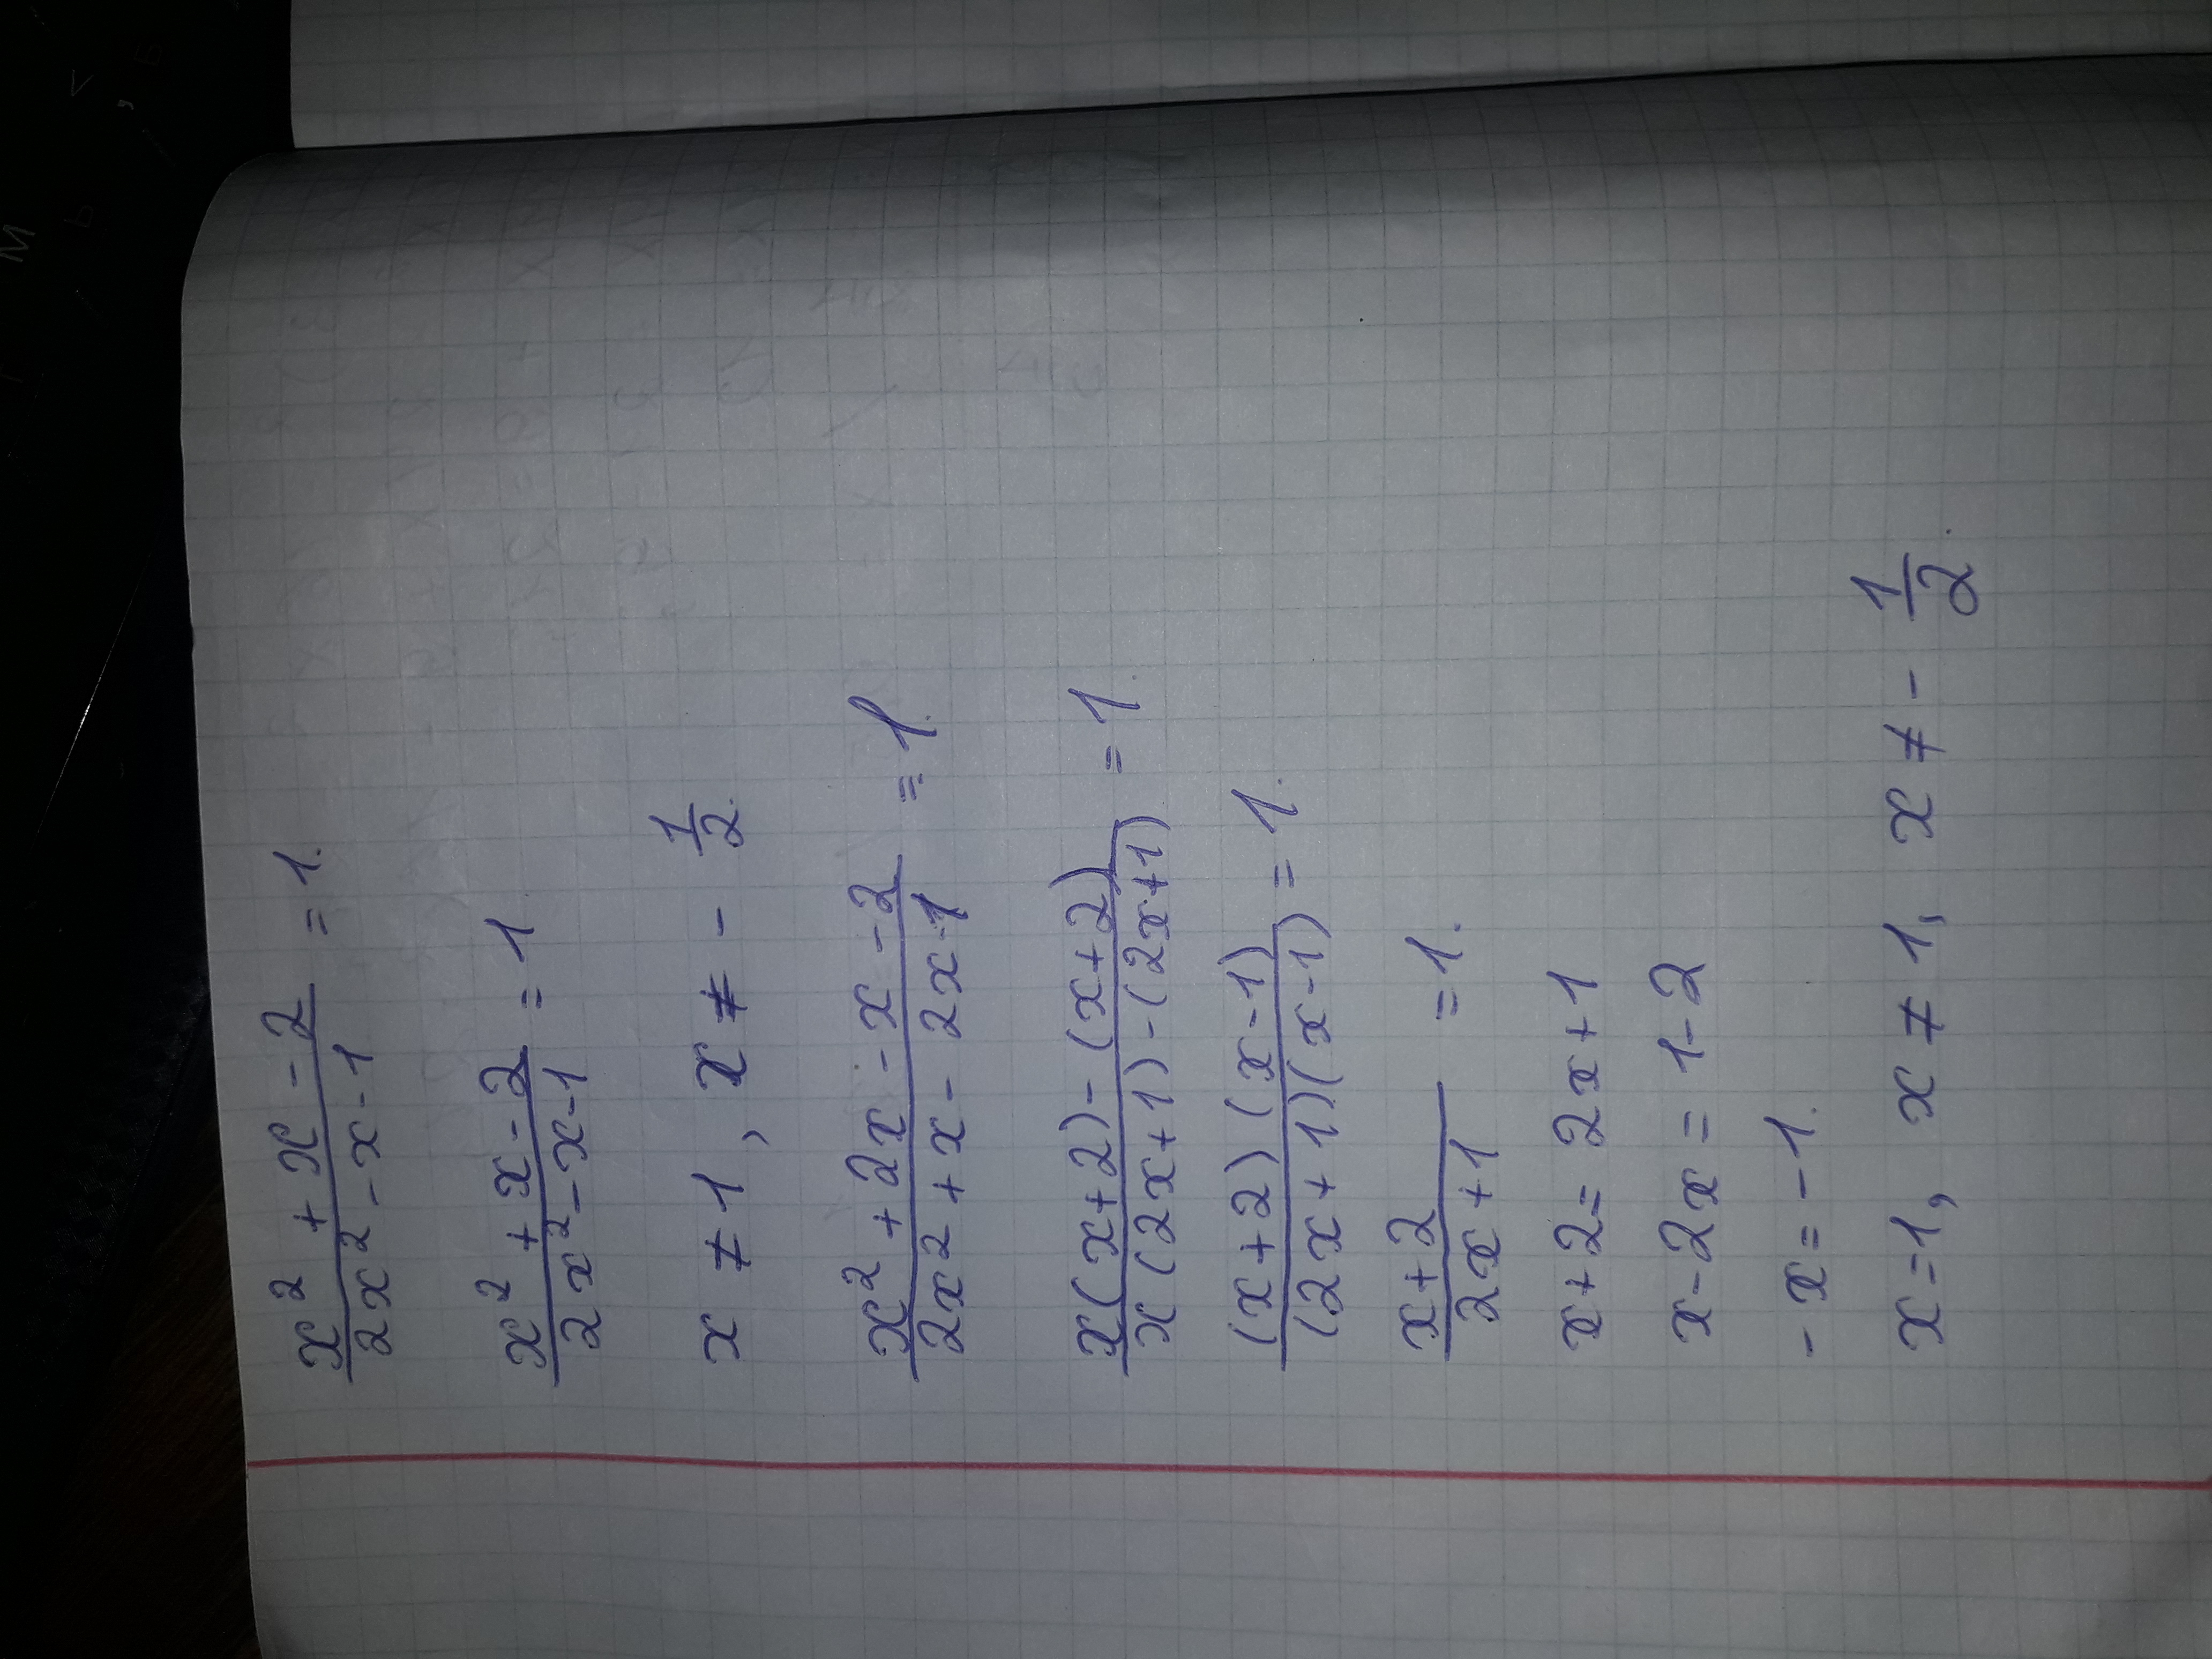 x² + x - 2 / 2x² - x - 1 = 1.
x² + x - 2 / 2x² - x - 1 = 1
x ≠ 1, x ≠ - 1/2.
x² + 2x - x - 2 / 2x² + x - 2x - 1 = 1.
x(x+2) - (x+2) / x(2x+1) - (2x+1) = 1
(x+2)(x-1) / (2x+1)(x-1) = 1.
x+2 / 2x+1 = 1.
x+2 = 2x+1
x - 2x = 1 - 2
- x = - 1.
x = 1, x ≠ 1, x ≠ - 1/2.